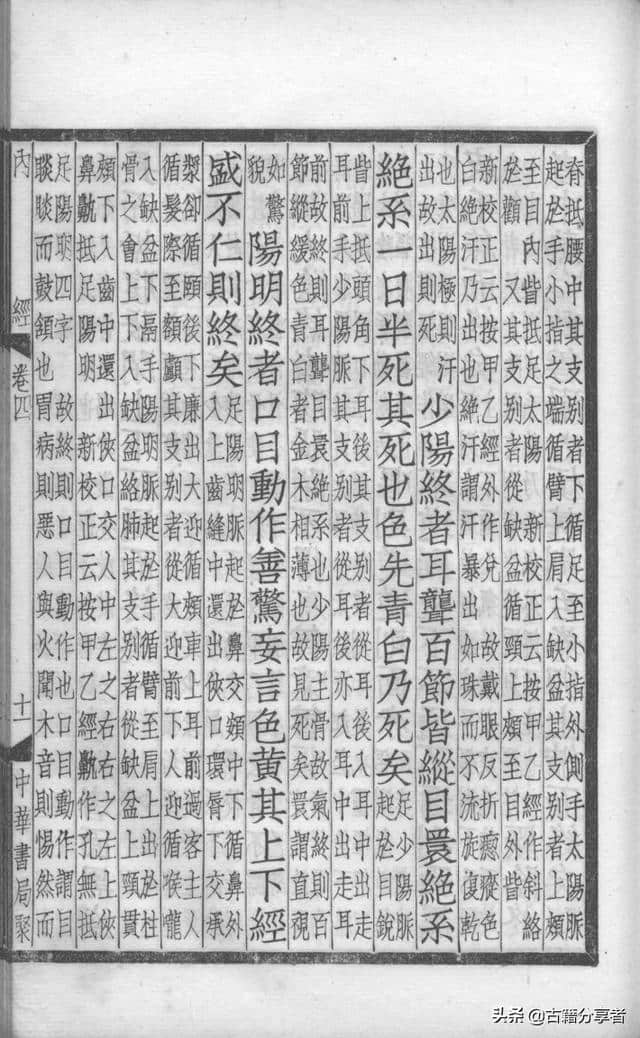 脊抵腰中其支别者下循足至小指外側手太陽脈
起於手小指之端循臂上肩入缺盆其支别者上頰
至目内眥抵足太陽 新校正云按甲乙經作斜絡
於顴 又其支别者從缺盆循頸上頰至目外眥
新校正云按甲乙經外作兌 故戴眼反折瘛瘲色
白絕汗乃出也絕汗謂汗暴出如珠而不流旋復乾
也太陽極則汗
出故出則死
少陽終者耳聾百節皆縱目睘絕系
絕系一日半死其死也色先青白乃死矣
足少陽脈
起於目銳
眥上抵頭角下耳後其支别者從耳後入耳中出走
耳前手少陽脈其支别者從耳後亦入耳中出走耳
前故終則耳聾目睘絕系也少陽主骨故氣終則百
節縱緩色青白者金木相薄也故見死矣睘謂直視
如驚
貌
陽明終者口目動作善驚妄言色黄其上下經
盛不仁則終矣
足陽明脈起於鼻交頞中下循鼻外
入上齒縫中還出俠口環脣下交承
漿却循頤後下廉出大迎循頰車上耳前過客主人
循髮際至額顱其支别者從大迎前下人迎循喉嚨
入缺盆下鬲手陽明脈起於手循臂至肩上出於柱
骨之會上下入缺盆絡肺其支别者從缺盆上頸貫
頰下入齒中還出俠口交人中左之右右之左上俠
鼻鼽抵足陽明 新校正云按甲乙經鼽作孔無抵
足陽明四字 故終則口目動作也口目動作謂目
睒睒而鼓頷也胃病則惡人與火聞木音則惕然而
内經 卷四 十一 中華書局聚
头条 @古籍分享者